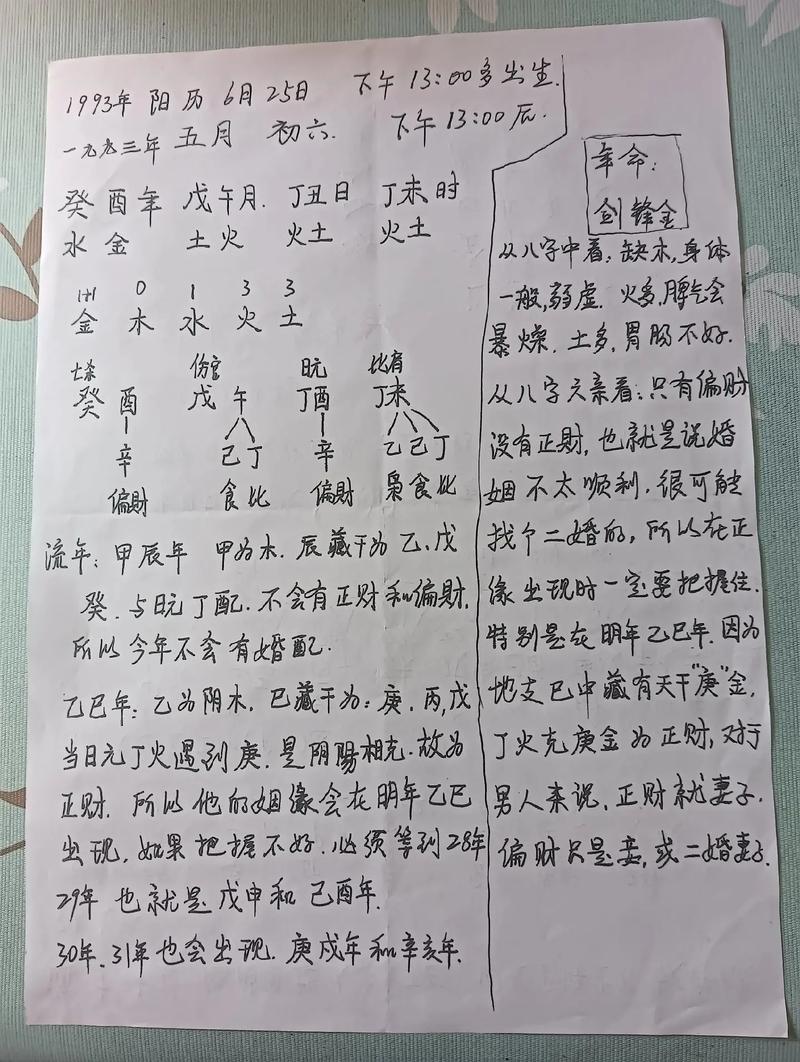 1993年 阳历 6月25日 下午13:00多出生.
一九九三年 五月 初六. 下午13:00后.
癸酉年 戊午月. 丁丑日 丁未时
水金 土火 火土 火土
1+1 0 1 3 3
金 木 水 火 土
七杀 伤官 日元 比肩
癸酉 戊午 丁酉 丁未
辛 己丁 辛 乙己丁
偏财 食比 偏财 枭食比
流年: 甲辰年 甲为木. 辰藏干为乙、戊
癸. 与日元丁配. 不会有正财和偏财.
所以今年不会有婚配.
乙巳年: 乙为阴木, 巳藏干为: 庚, 丙, 戊
当日元丁火遇到庚. 是阴陽相克. 故为
正财. 所以他的姻缘会在明年乙巳
出现, 如果把握不好. 必须等到28年
29年 也就是戊申和己酉年.
30年、31年也会出现. 庚戌年和辛亥年.
年命:
剑锋金
从八字中看: 缺木, 身体
一般, 弱虚. 火多, 脾气会
暴燥. 土多, 胃肠不好.
从八字六亲看: 只有偏财
没有正财, 也就是说婚
姻不太顺利. 很可能
找个二婚的, 所以在正
缘出现时一定要把握住.
特别是在明年乙巳年. 因为
地支巳中藏有天干"庚"金,
丁火克庚金为正财, 对于
男人来说, 正财就妻子.
偏财只是妾, 或二婚妻子.